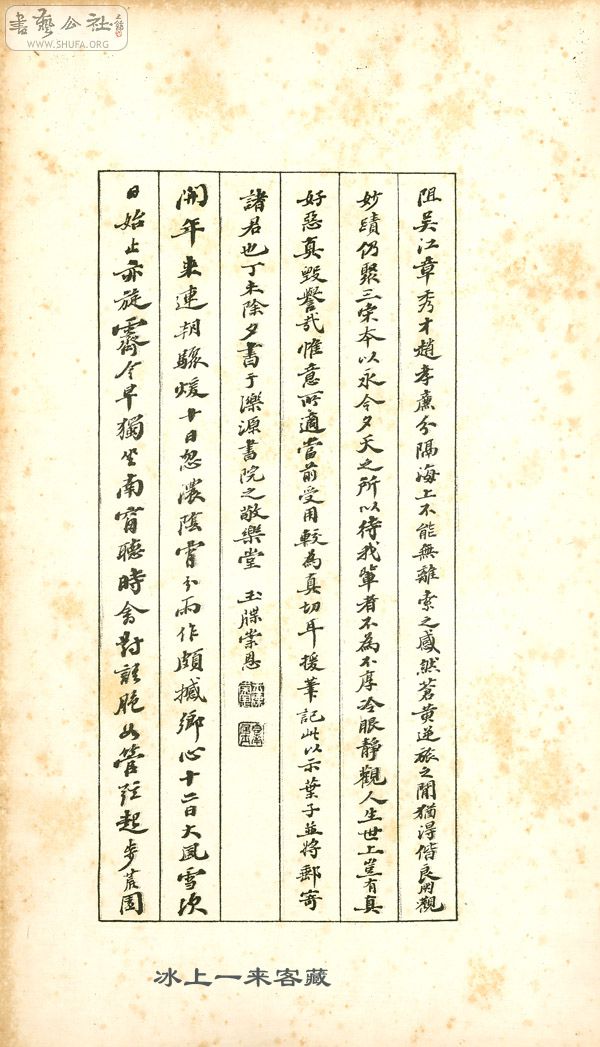 書藝公社
WWW.SHUFA.ORG
阻吳江章秀才趙孝廉分隔海上不能無離索之感然蒼黄逆旅之間猶得偕良朋觀
妙蹟仍聚三宋本以永今夕天之所以待我輩者不為不厚冷眼靜觀人生世上豈有真
好惡真毀譽哉惟意所適當前受用較為真切耳援筆記此以示葉子並將郵寄
諸君也丁未除夕書于濼源書院之敬樂堂 玉牒崇恩
開年來連朝驟煖十日忽濃陰宵分雨作頗撼鄉心十二日大風雪次
日始止亦旋霽今早獨坐南窗聽時禽對語脆如管弦起步荒園
冰上一来客藏